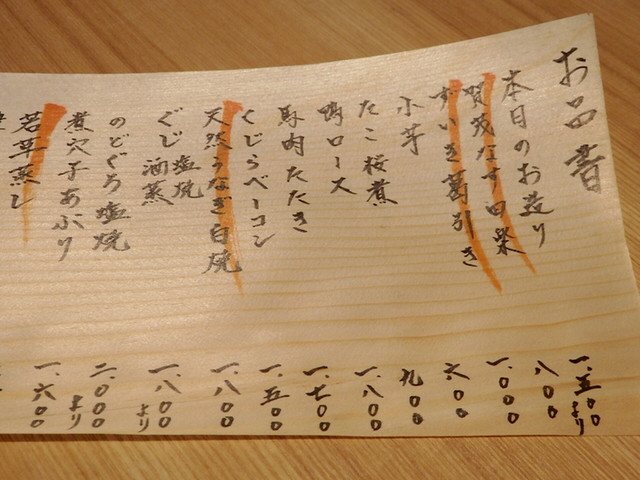 お品書
本日のお造り 一、五〇〇より
賀茂なす田楽 八〇〇
ずいき葛引き 一、〇〇〇
小芋 六〇〇
たこ桜煮 九〇〇
鴨ロース 一、八〇〇
馬肉たたき 一、七〇〇
くじらベーコン 一、五〇〇
天然うなぎ白焼 一、八〇〇
ぐじ 塩焼 酒蒸 一、八〇〇より
のどぐろ塩焼 二、〇〇〇より
煮穴子あぶり 一、六〇〇
若草蒸し